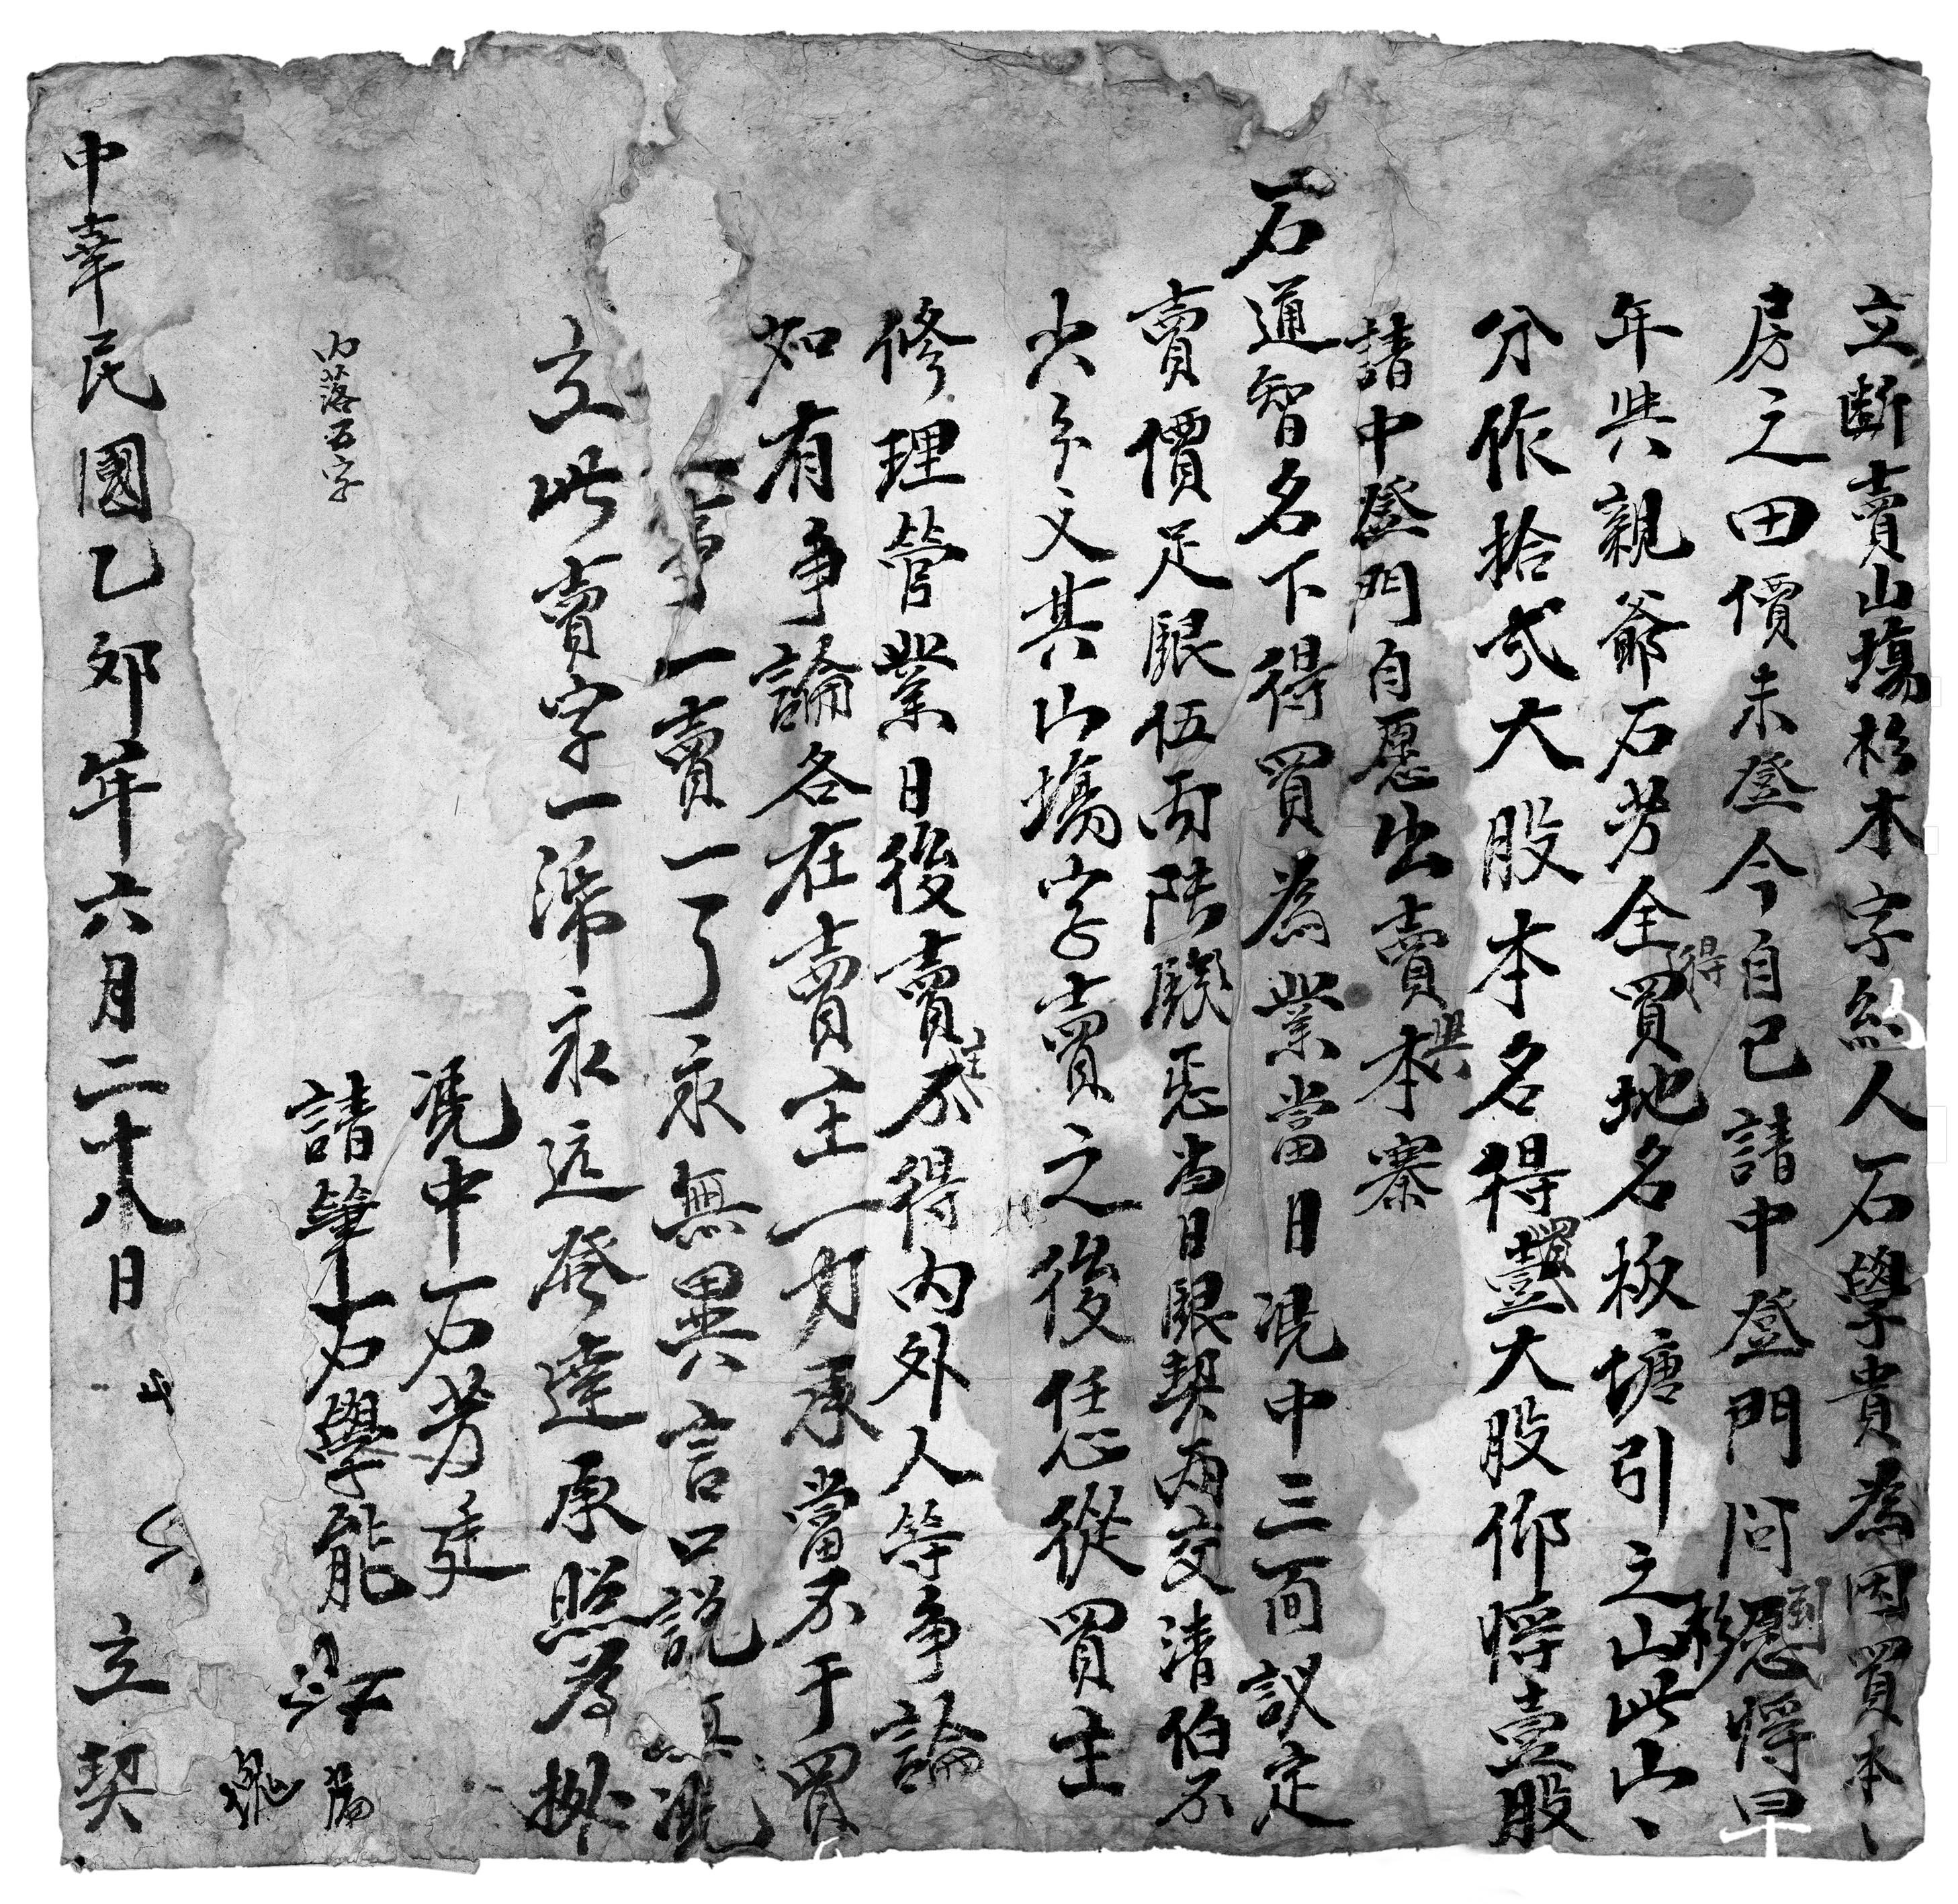 立斷賣山塲杉木字約人石學貴為因買本丶
房之田價未登今自己請中登門问到愿将早
年共親爺石芳全買得地名板塘引之山杉此山丶
分作拾弍大股本名得買壹大股仰将壹股
請中登門自愿出賣與本寨
石道智名下得買為業當日凴中三面議定
賣價足銀伍两陆錢
当日銀契两交清伯不
少分文其山塲字賣之後任從買主
修理管業日後賣主不得内外人等争論
如有争論各在賣主一力承當不于買
事一賣一了永無異言口説無凴
立此賣字一㡧永远發達承照為拠
凴中石芳廷
請筆石學能
内落五字
中華民國乙卯年六月二十八日 立契